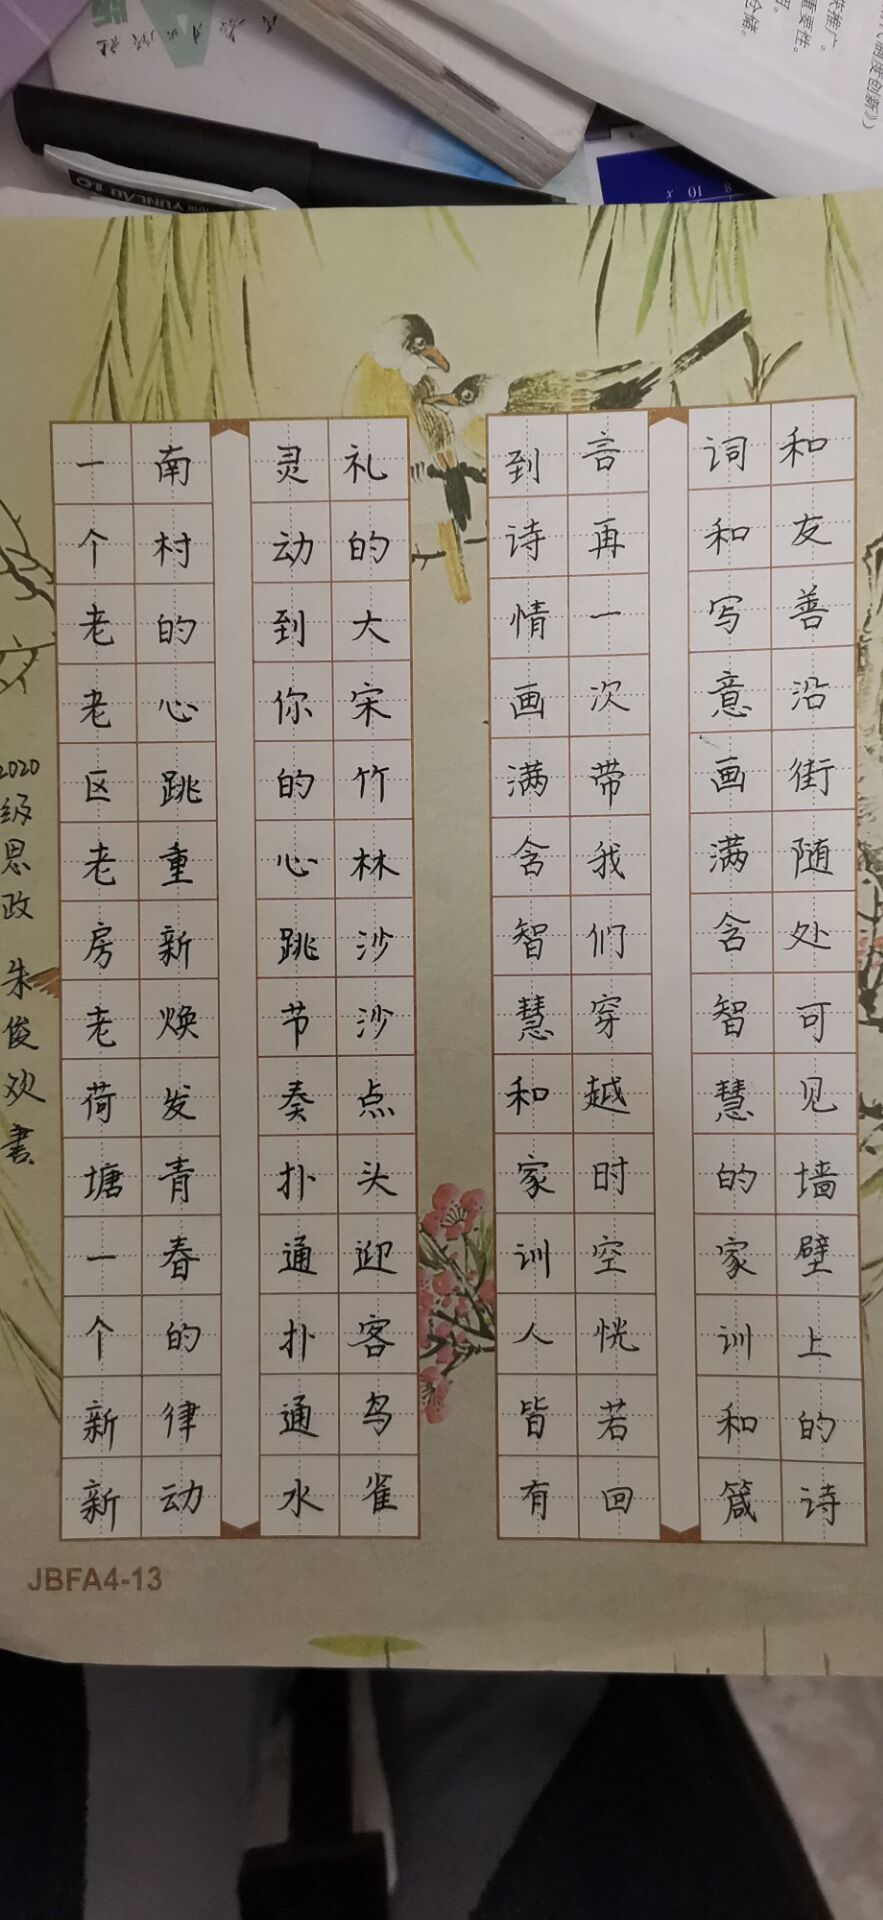 和友善沿街随处可见墙壁上的诗
词和写意画满含智慧的家训和箴
言再一次带我们穿越时空恍若回
到诗情画满含智慧和家训人皆有
礼的大宋竹林沙沙点头迎客鸟雀
灵动到你的心跳节奏扑通扑通水
南村的心跳重新焕发青春的律动
一个老老区老房老荷塘一个新新
2020级思政 朱俊欢書
JBFA4-13
YUNLAU
重要性。